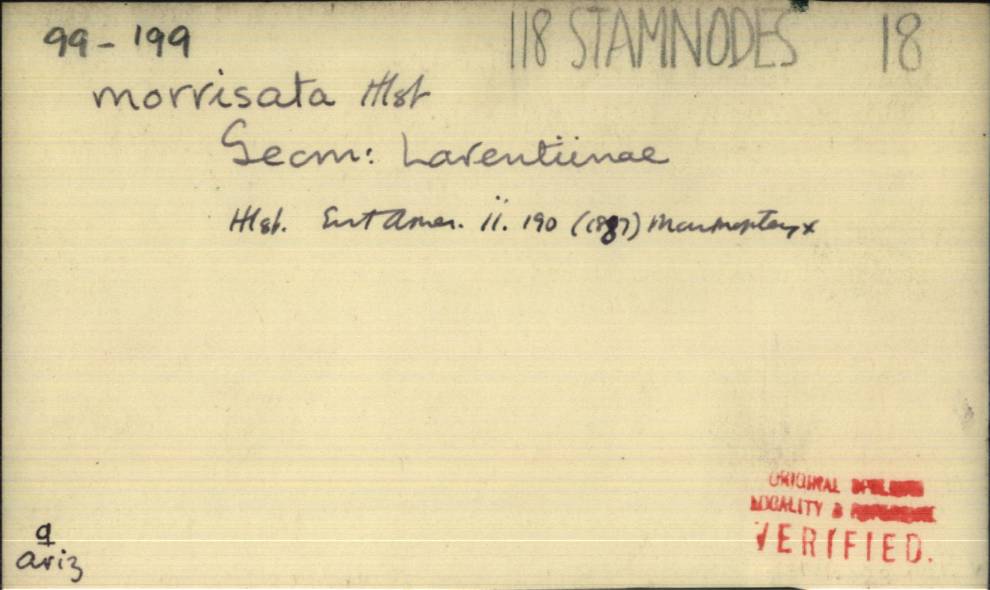 99-199 118 STAMNODES 18
morrisata Hlst
Geom: Larentiinae
Hlst. Ent Amer. ii. 190 (1887) Marmopteryx
ORIGINAL
LOCALITY &
VERIFIED.
a
Ariz